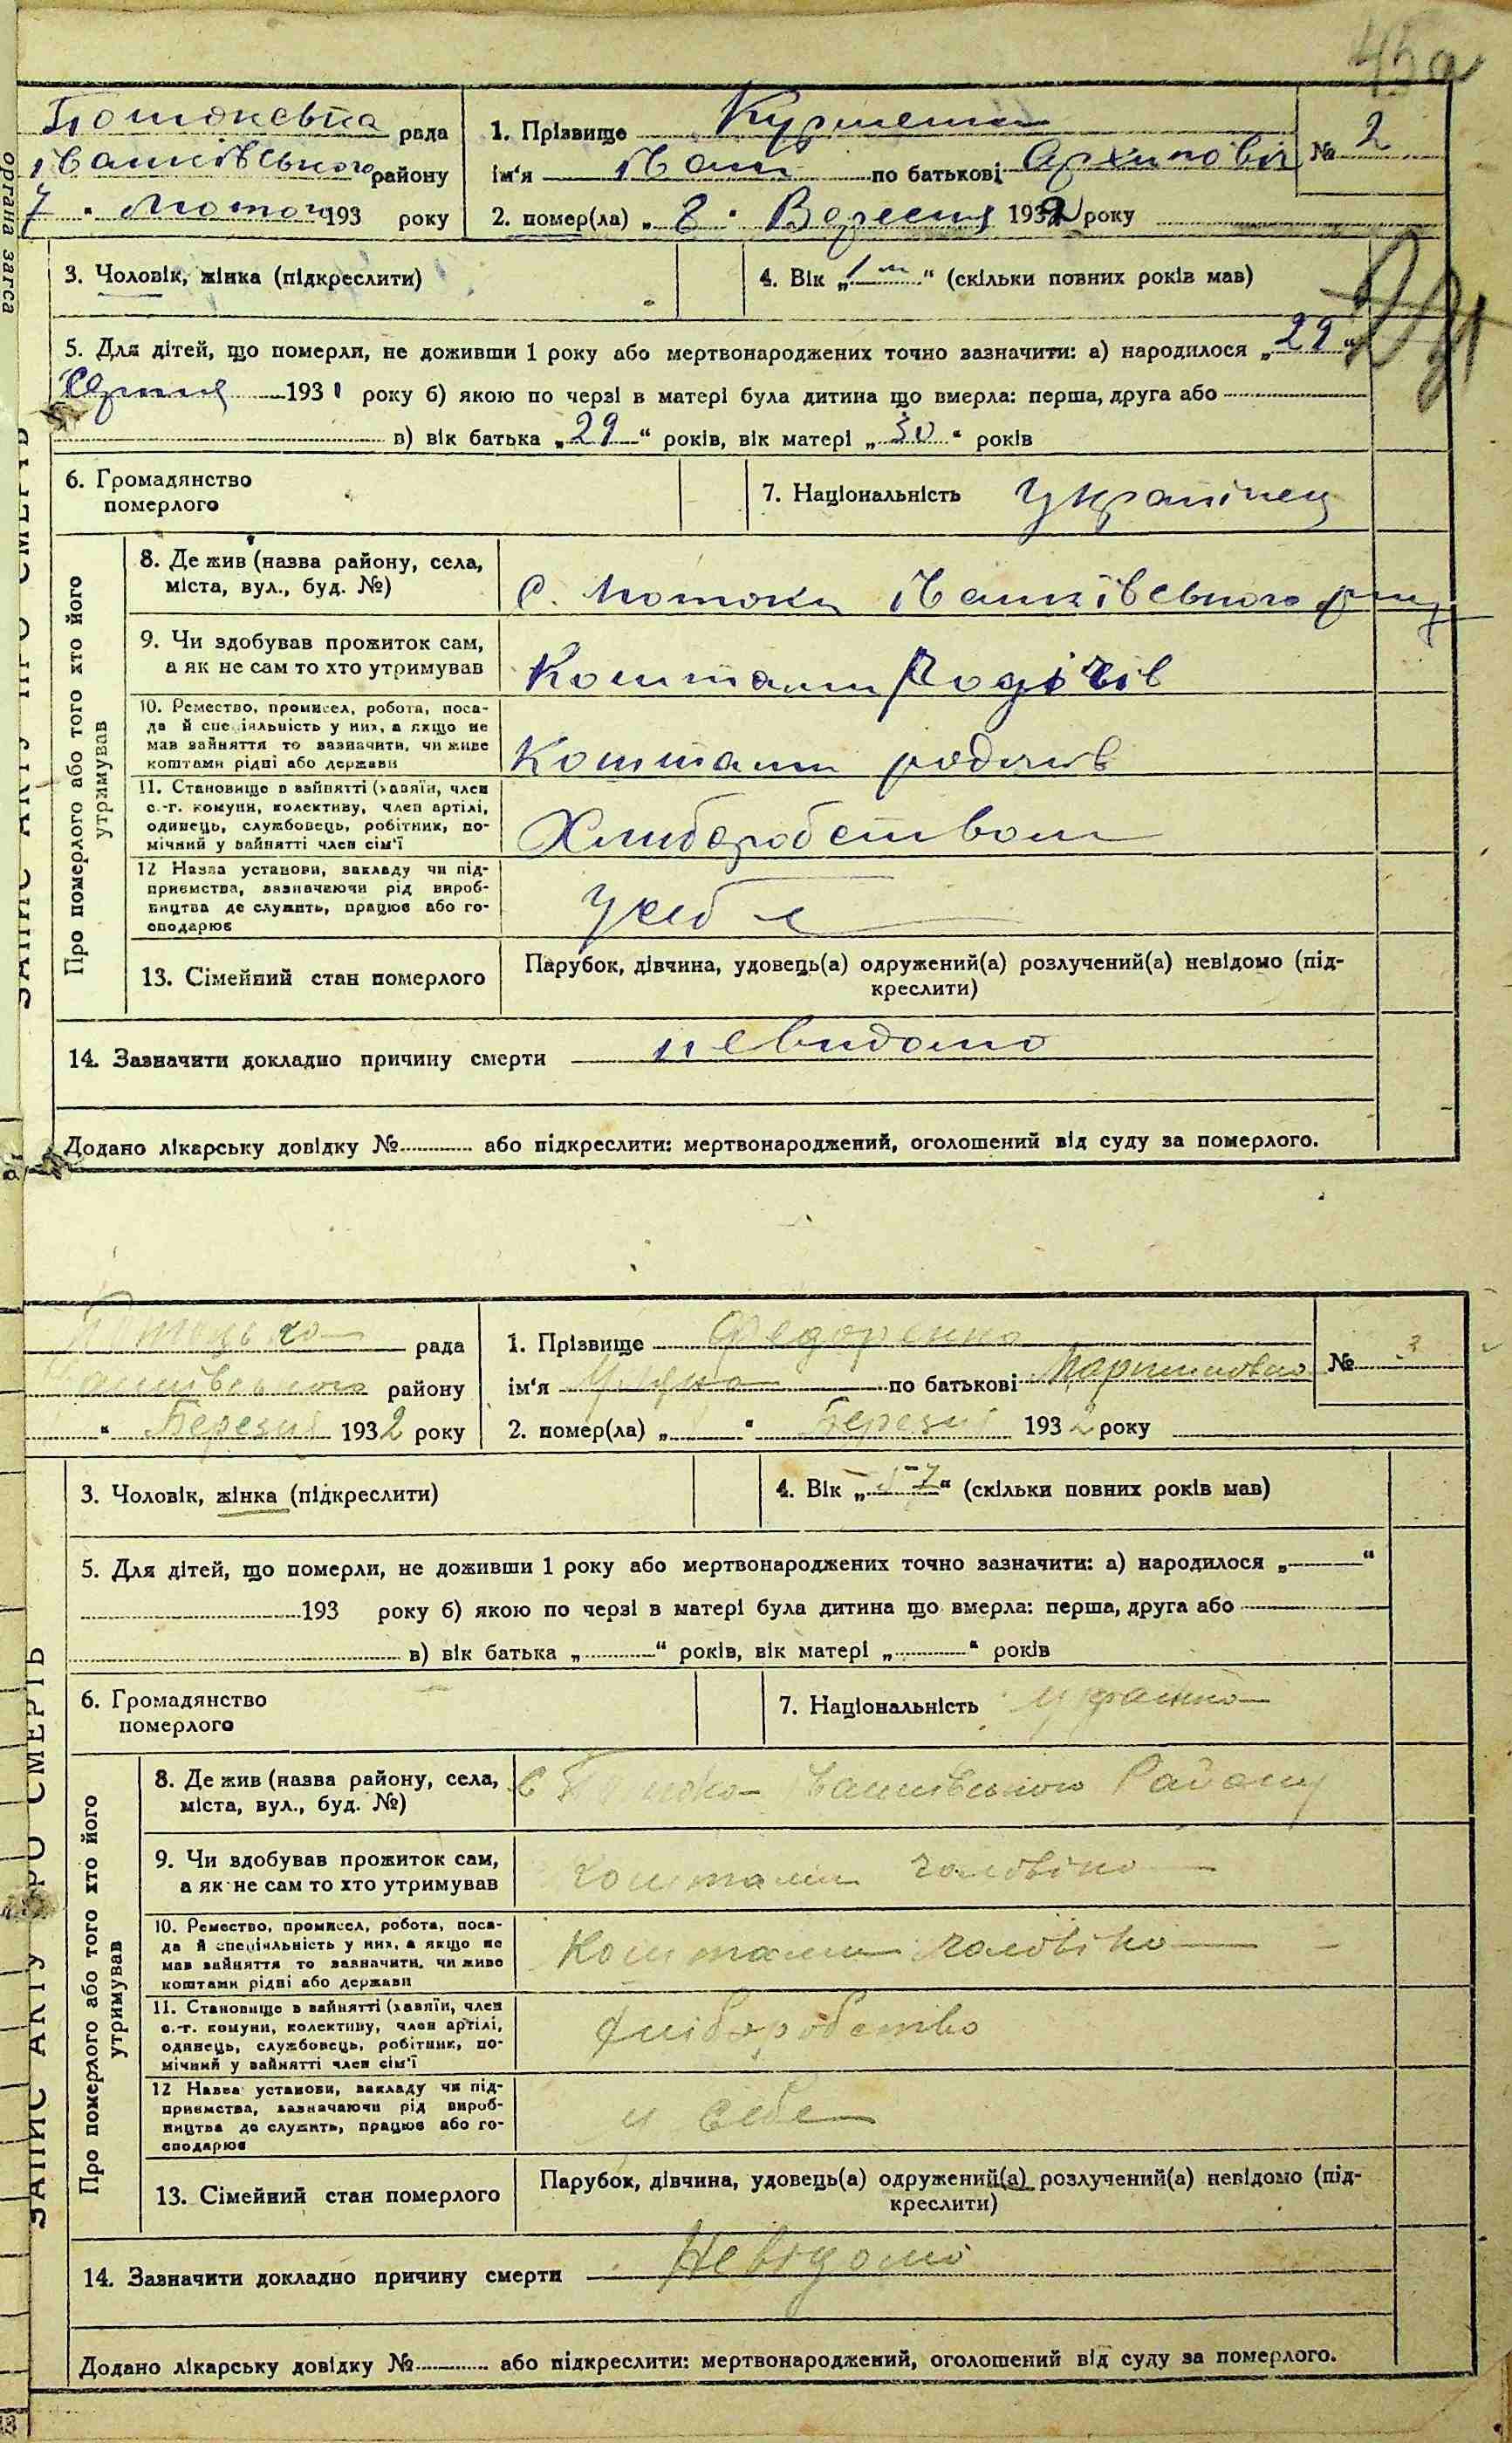 45а
рада
Іванківського району
7 " Лютого 193 року
1. Прізвище
№ 2
ім'я Іван по батькові Архипович
2. помер(ла) „ 8 " 1932 року
3. Чоловік, жінка (підкреслити)
4. Вік „ 1 м " (скільки повних років мав)
5. Для дітей, що померли, не доживши 1 року або мертвонароджених точно зазначити: а) народилося „ 29 "
193 року б) якою по черзі в матері була дитина що вмерла: перша, друга або
в) вік батька „ 29 " років, вік матері „ 30 " років
6. Громадянство
померлого
7. Національність Українец
ЗАПИС АКТУ ПРО СМЕРТЬ
органа загса
Про померлого або того хто його
утримував
8. Де жив (назва району, села,
міста, вул., буд. №)
с. Потоки Іванківського
9. Чи здобував прожиток сам,
а як не сам то хто утримував
Коштами Родічів
10. Ремество, промисел, робота, поса-
да й спеціяльність у них, а якщо не
мав зайняття то зазначити, чи живе
коштами рідні або держави
Коштами родичів
11. Становище в зайнятті (хазяїн, член
с.-г. комуни, колективу, член артілі,
одинець, службовець, робітник, по-
мічний у зайнятті член сім'ї
Хлиборобством
12 Назва установи, закладу чи під-
приємства, зазначаючи рід вироб-
ництва де служить, працює або го-
сподарює
У себе
13. Сімейний стан померлого
Парубок, дівчина, удовець(а) одружений(а) розлучений(а) невідомо (під-
креслити)
14. Зазначити докладно причину смерти невидомо
Додано лікарську довідку № або підкреслити: мертвонароджений, оголошений від суду за померлого.
рада
Іванківського району
" Березня 1932 року
1. Прізвище Федоренко
№ 3
ім'я по батькові Мартиновна
2. помер(ла) „ " Березня 1932 року
3. Чоловік, жінка (підкреслити)
4. Вік „ 57 " (скільки повних років мав)
5. Для дітей, що померли, не доживши 1 року або мертвонароджених точно зазначити: а) народилося „ "
193 року б) якою по черзі в матері була дитина що вмерла: перша, друга або
в) вік батька „ " років, вік матері „ " років
6. Громадянство
померлого
7. Національність
ЗАПИС АКТУ ПРО СМЕРТЬ
Про померлого або того хто його
утримував
8. Де жив (назва району, села,
міста, вул., буд. №)
с Іванківського Району
9. Чи здобував прожиток сам,
а як не сам то хто утримував
коштами чоловіка
10. Ремество, промисел, робота, поса-
да й спеціяльність у них, а якщо не
мав зайняття то зазначити, чи живе
коштами рідні або держави
Коштами чоловіка
11. Становище в зайнятті (хазяїн, член
с.-г. комуни, колективу, член артілі,
одинець, службовець, робітник, по-
мічний у зайнятті член сім'ї
хліборобство
12 Назва установи, закладу чи під-
приємства, зазначаючи рід вироб-
ництва де служить, працює або го-
сподарює
у себе
13. Сімейний стан померлого
Парубок, дівчина, удовець(а) одружений(а) розлучений(а) невідомо (під-
креслити)
14. Зазначити докладно причину смерти Невідомо
Додано лікарську довідку № або підкреслити: мертвонароджений, оголошений від суду за померлого.